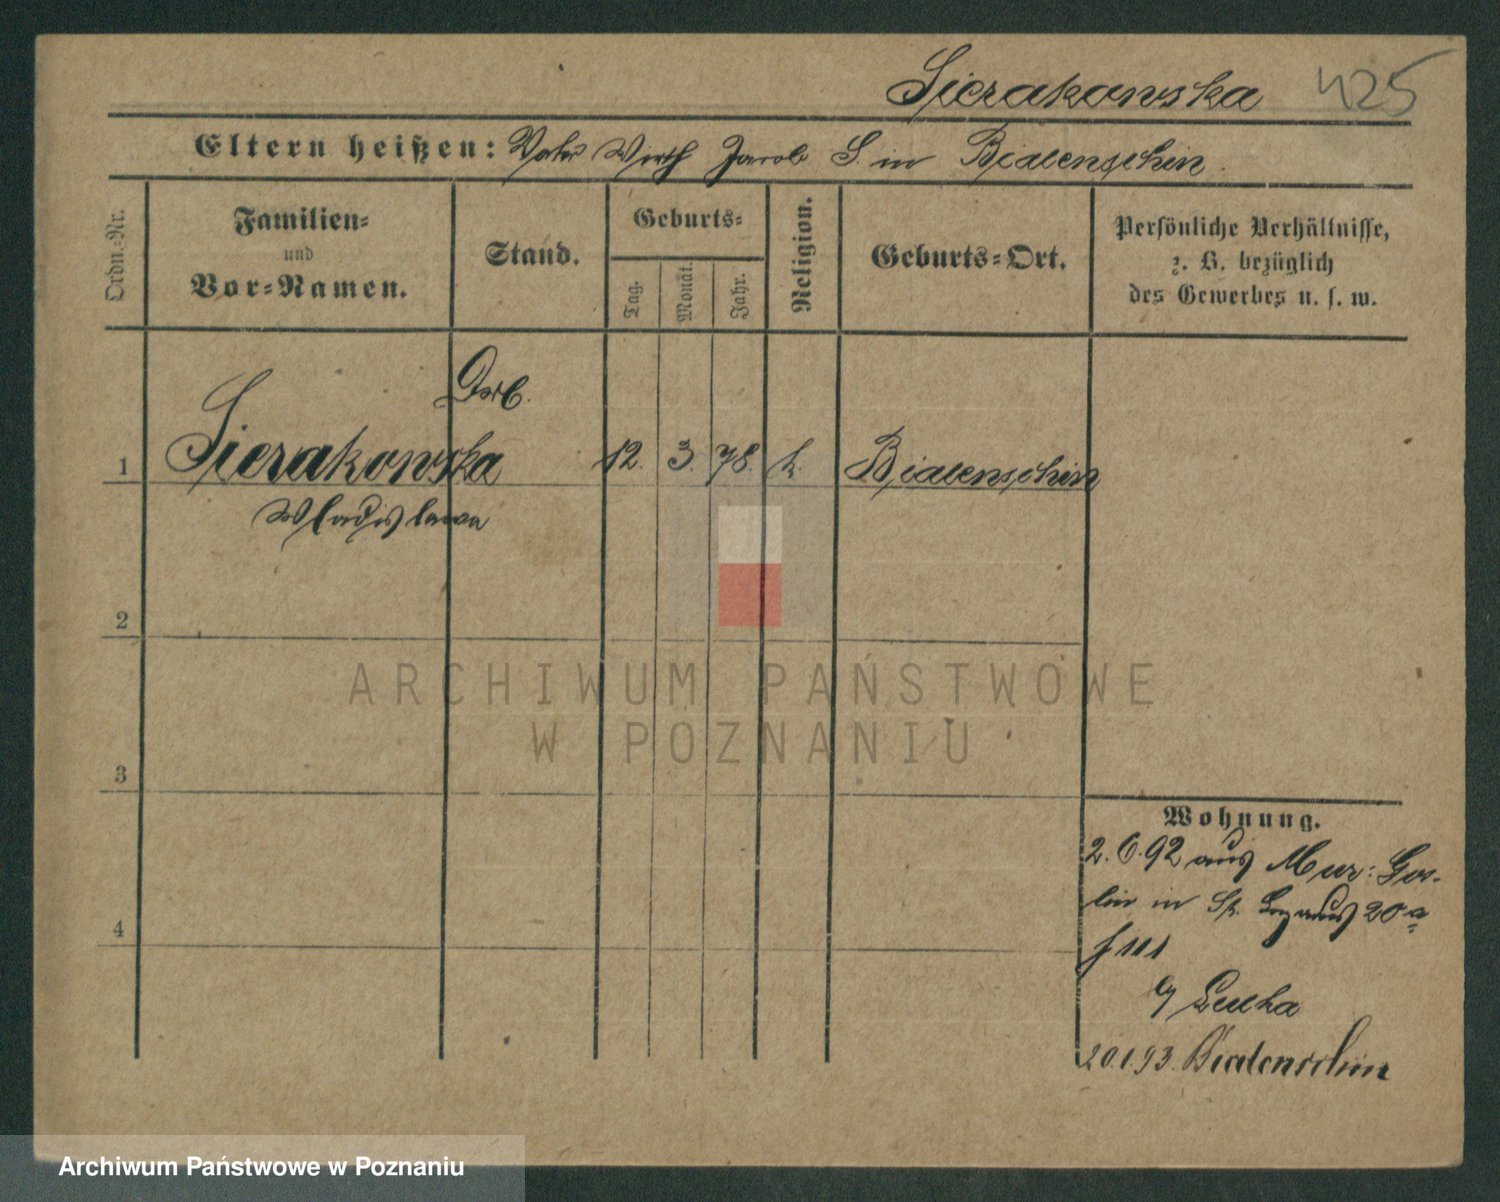 Sierakowska 425
Eltern heißen: Vater Wirth Jacob S. in Bialenschin.
Ordn.=Nr.
Familien=
und
Vor=Namen.
Stand.
Geburts=
Tag.
Monat.
Jahr.
Religion.
Geburts=Ort.
Persönliche Verhältnisse,
z. B. bezüglich
des Gewerbes u. s. w.
1 Sierakowska 12. 3. 78. k. Bialenschin
Wladislawa
2
3
4
Wohnung.
2.6.92 aus Mur: Gos-
lin in St. 20 a
f 111
20.1.93. Bialenschin
ARCHIWUM PAŃSTWOWE
W POZNANIU
Archiwum Państwowe w Poznaniu